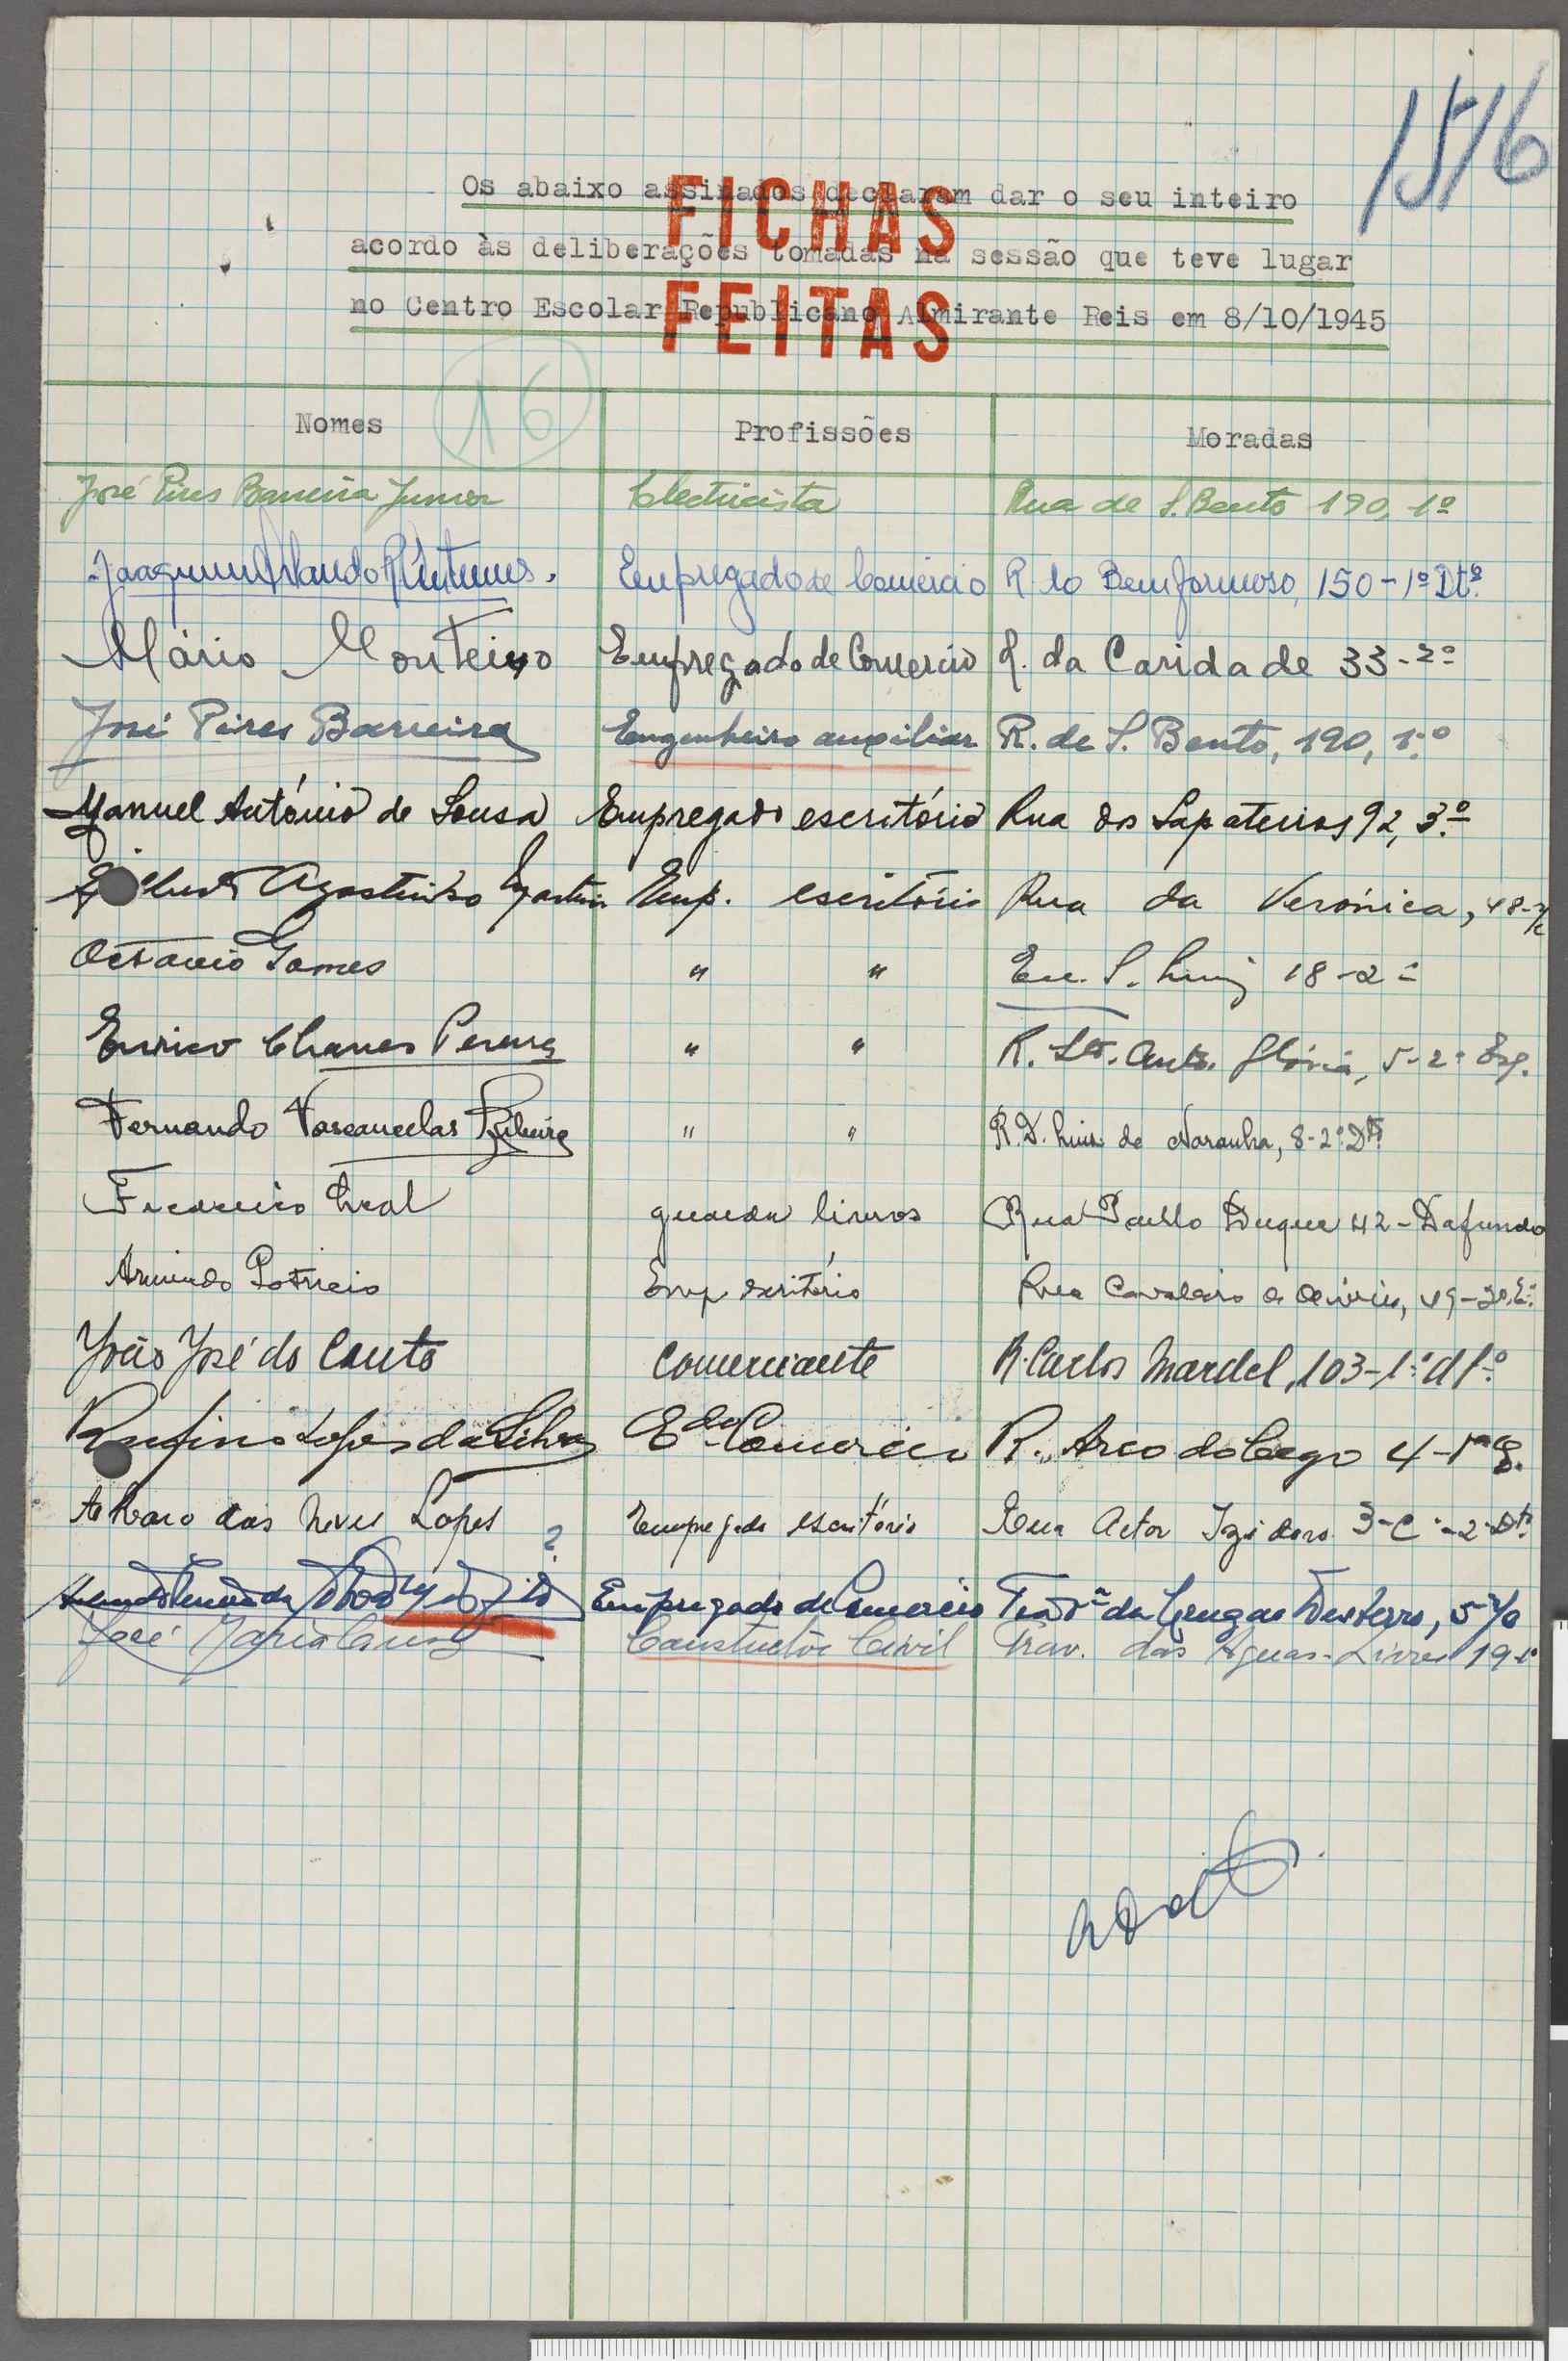 1516
Os abaixo assinados declaram dar o seu inteiro
acordo às deliberações tomadas na sessão que teve lugar
no Centro Escolar Republicano Almirante Reis em 8/10/1945
FICHAS
FEITAS
16
Nomes Profissões Moradas
José Pires Barreira Junior Electricista Rua de S. Bento 190, 1º
Joaquim Antunes. Empregado de Comércio R. do Bemformoso, 150-1º Dtº
Mário Monteiro Empregado de Comercio R. da Caridade 33-2º
José Pires Barreira Engenheiro auxiliar R. de S. Bento, 190, 1.º
Manuel António de Sousa Empregado escritório Rua dos Sapateiros 92, 3.º
Agostinho Martins Emp. escritório Rua da Verónica, 48-r/c
Octavio Gomes " " 18-2º
Eurico Chaves Pereira " " R. Stº. Antº. Glória, 5-2º Esq.
Fernando Vasconcelos Ribeiro " " R. D. Luis de Noronha, 8-2º Dtº
Leal guarda livros Rua Paullo Duque 42-Dafundo
Armindo Patricio Emp escritório Rua Cavaleiro de Oliveira, 49-3º, E.
João José do Couto Comerciante R. Carlos Mardel, 103-1.º dtº
Rufino Lopes da Silva E. do Comercio R. Arco do Cego 4-1º E.
Alvaro das Neves Lopes ? Empregado escritório Rua Actor Izidoro 3-C-2º Dtº
Empregado de Comercio Travª da Cruz ao Desterro, 5-
José Maria Constructor Civil Trav. das Aguas-Livres 19-1º